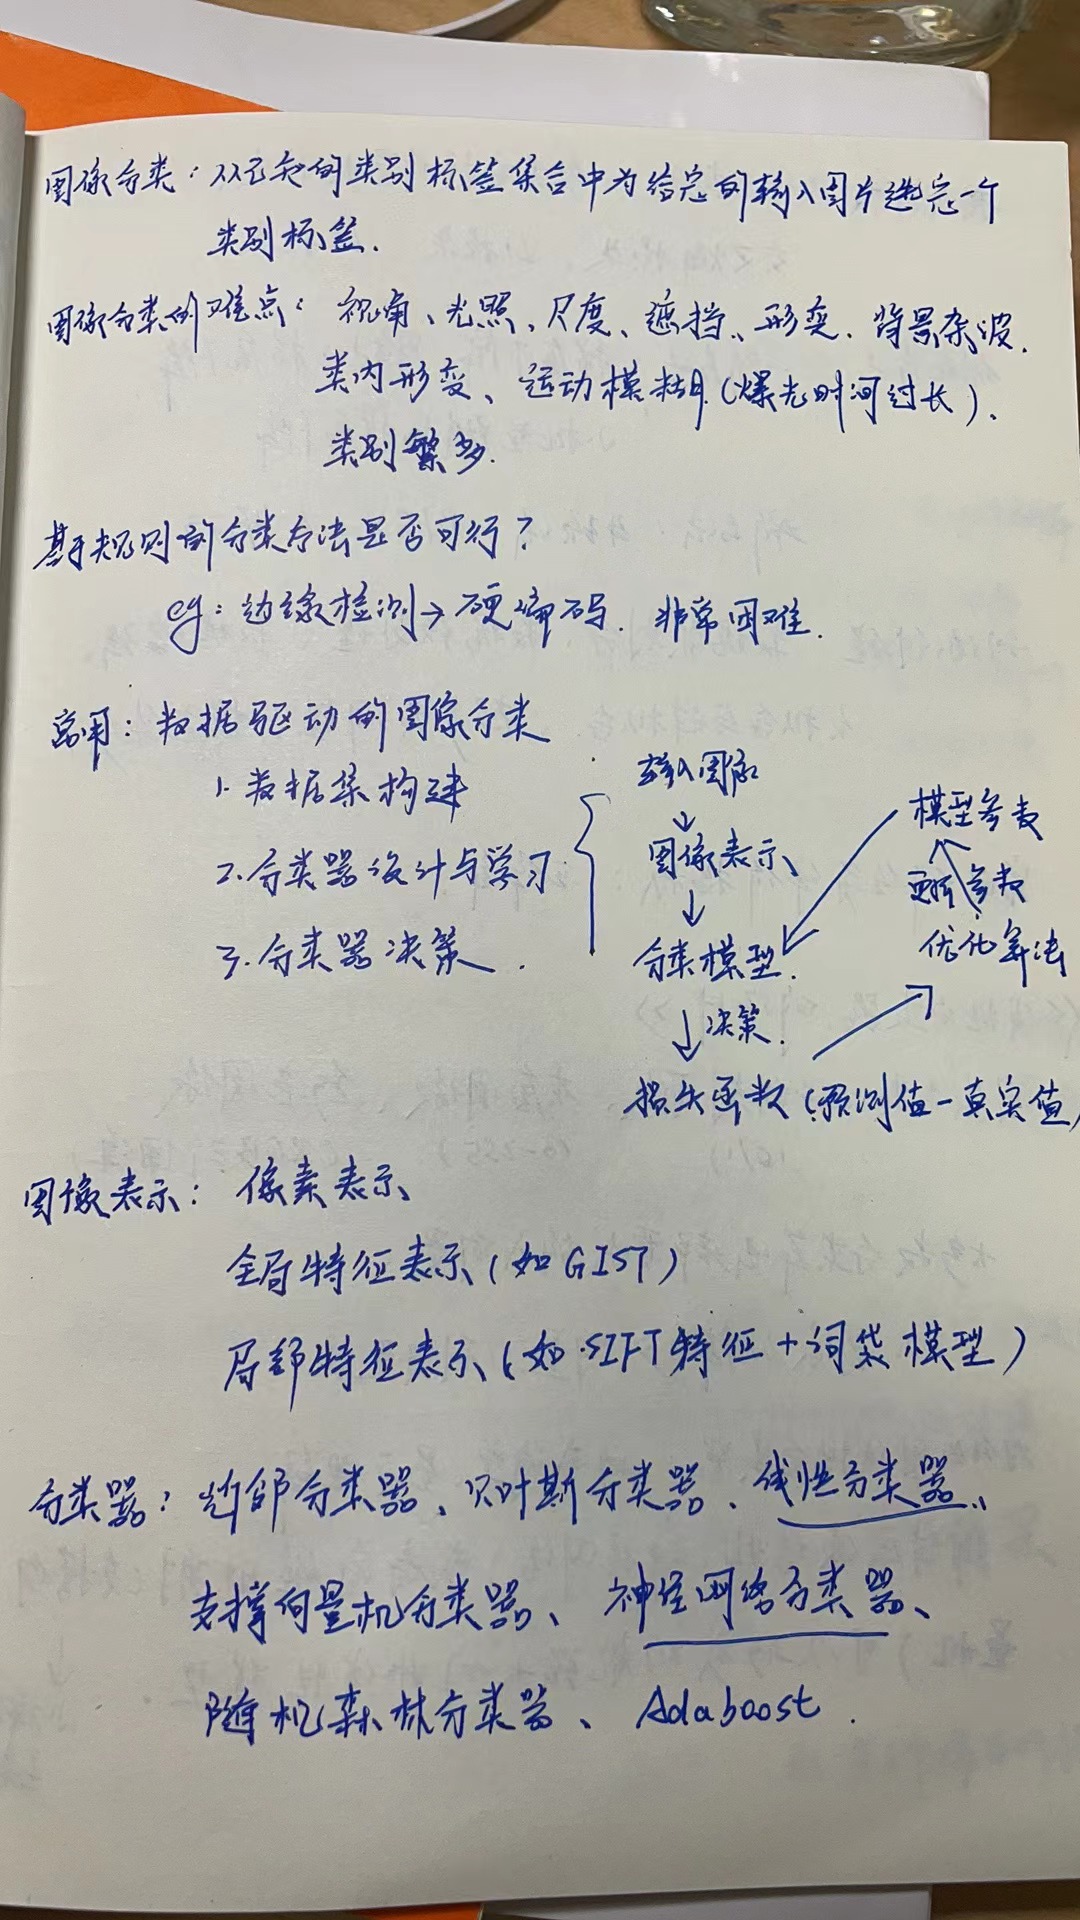 图像分类：从已知的类别标签集合中为给定的输入图片选定一个
类别标签.
图像分类的难点：视角、光照、尺度、遮挡、形变、背景杂波、
类内形变、运动模糊(爆光时间过长)、
类别繁多.
基于规则的分类方法是否可行？
eg：边缘检测→硬编码. 非常困难.
常用：数据驱动的图像分类
1. 数据集构建
2. 分类器设计与学习
3. 分类器决策.
输入图像
↓
图像表示
↓
分类模型.
↓决策.
损失函数(预测值-真实值)
模型参数
更新参数
优化算法
图像表示：像素表示
全局特征表示(如GIST)
局部特征表示(如SIFT特征+词袋模型)
分类器：近邻分类器、贝叶斯分类器、线性分类器、
支撑向量机分类器、神经网络分类器、
随机森林分类器、Adaboost.